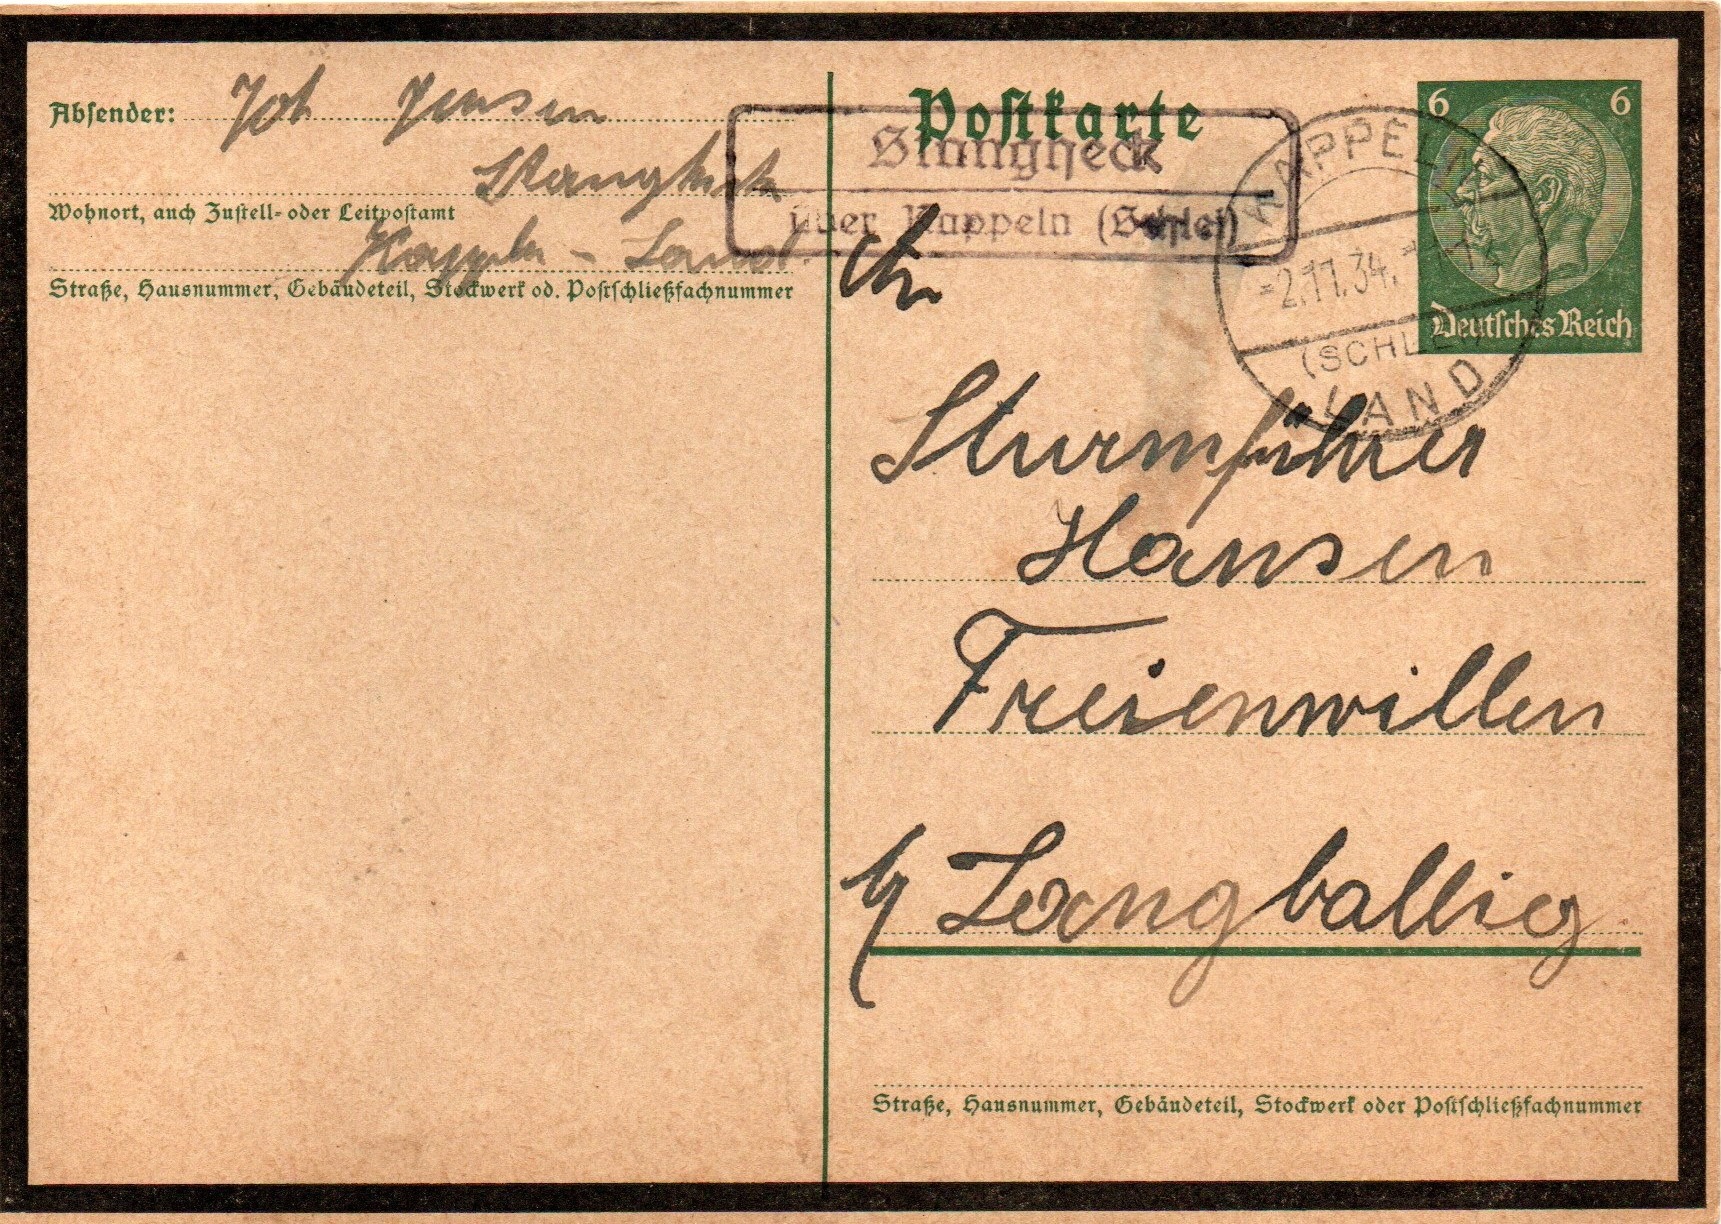 Absender: Joh Jensen
Stangheck
Wohnort, auch Zustell- oder Leitpostamt
Kappeln - Land.
Straße, Hausnummer, Gebäudeteil, Stockwerk od. Postschließfachnummer
Postkarte
Stangheck
über Kappeln (Schlei)
KAPPELN
-2.11.34.
(SCHLEI)
LAND
6 6
Deutsches Reich
An
Sturmführer
Hansen
Freienwillen
b/ Langballig
Straße, Hausnummer, Gebäudeteil, Stockwerk oder Postschließfachnummer